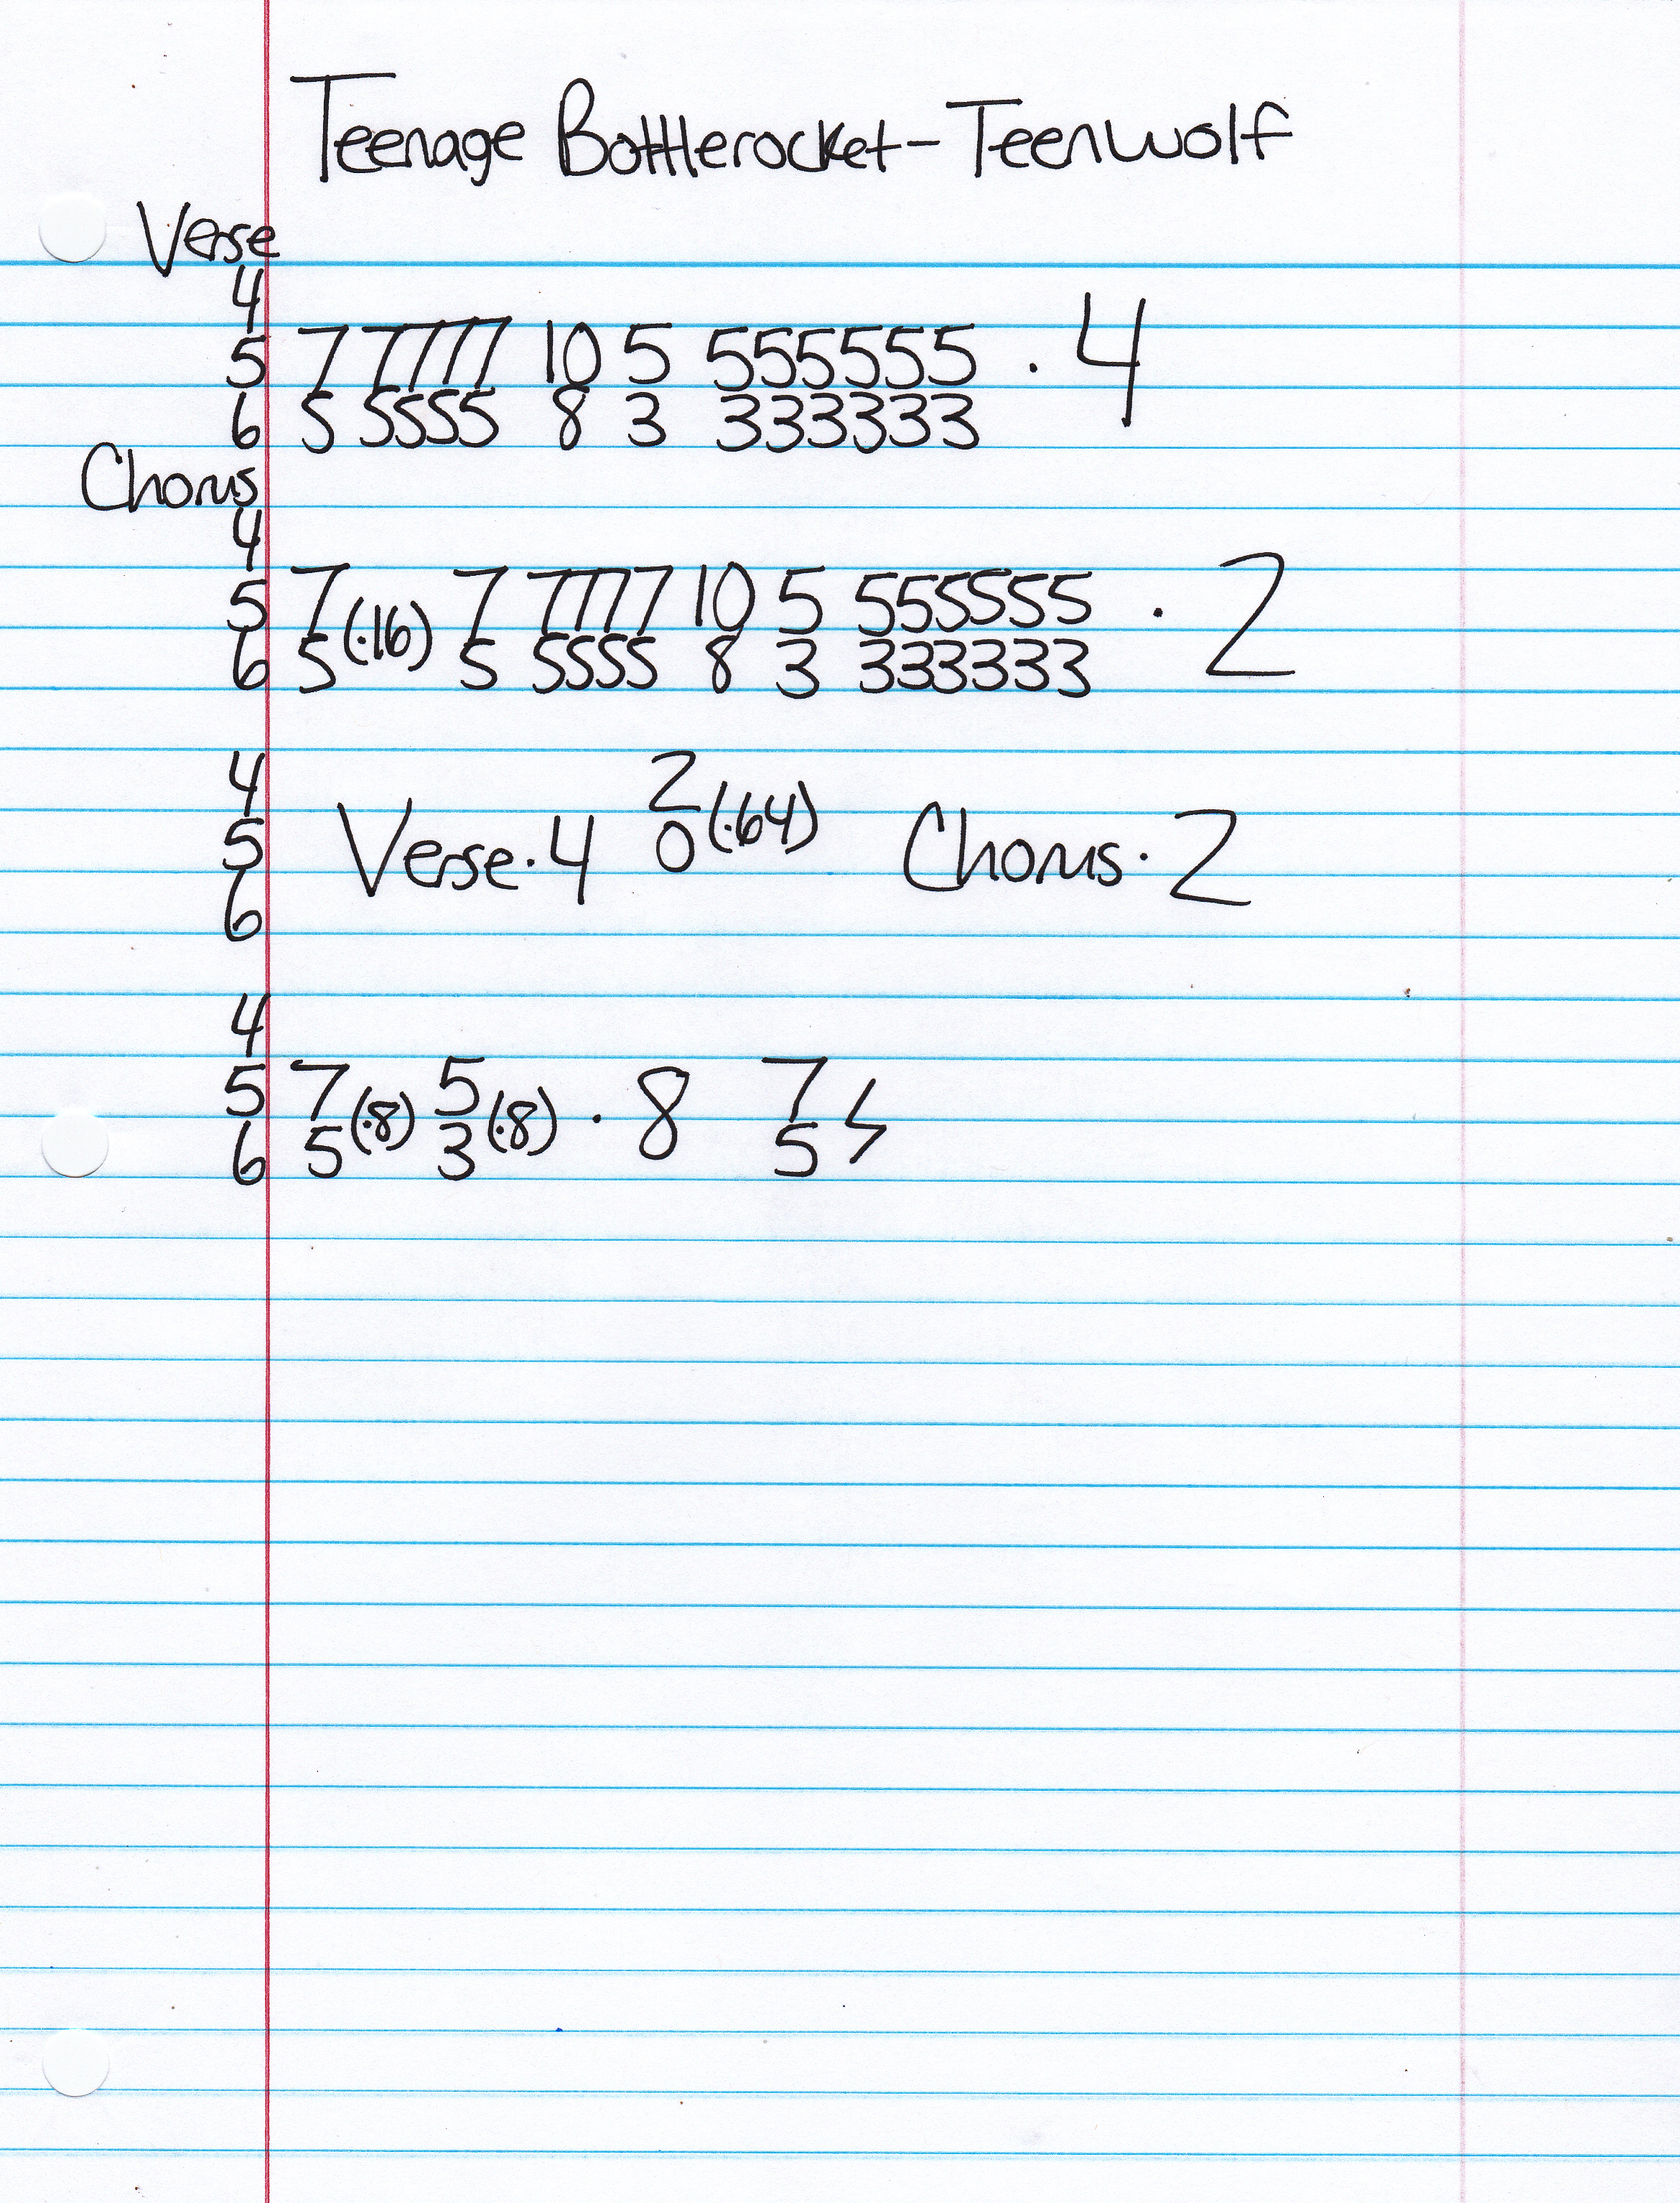 Teenage Bottlerocket - Teenwolf
Verse
4
5 7 7777 10 5 555555 · 4
6 5 5555 8 3 333333
Chorus
4
5 7 (·16) 7 7777 10 5 555555 · 2
6 5 5 5555 8 3 333333
4 2
5 Verse · 4 0 (·64) Chorus · 2
6
4
5 7 (·8) 5 (·8) · 8 7
6 5 3 5